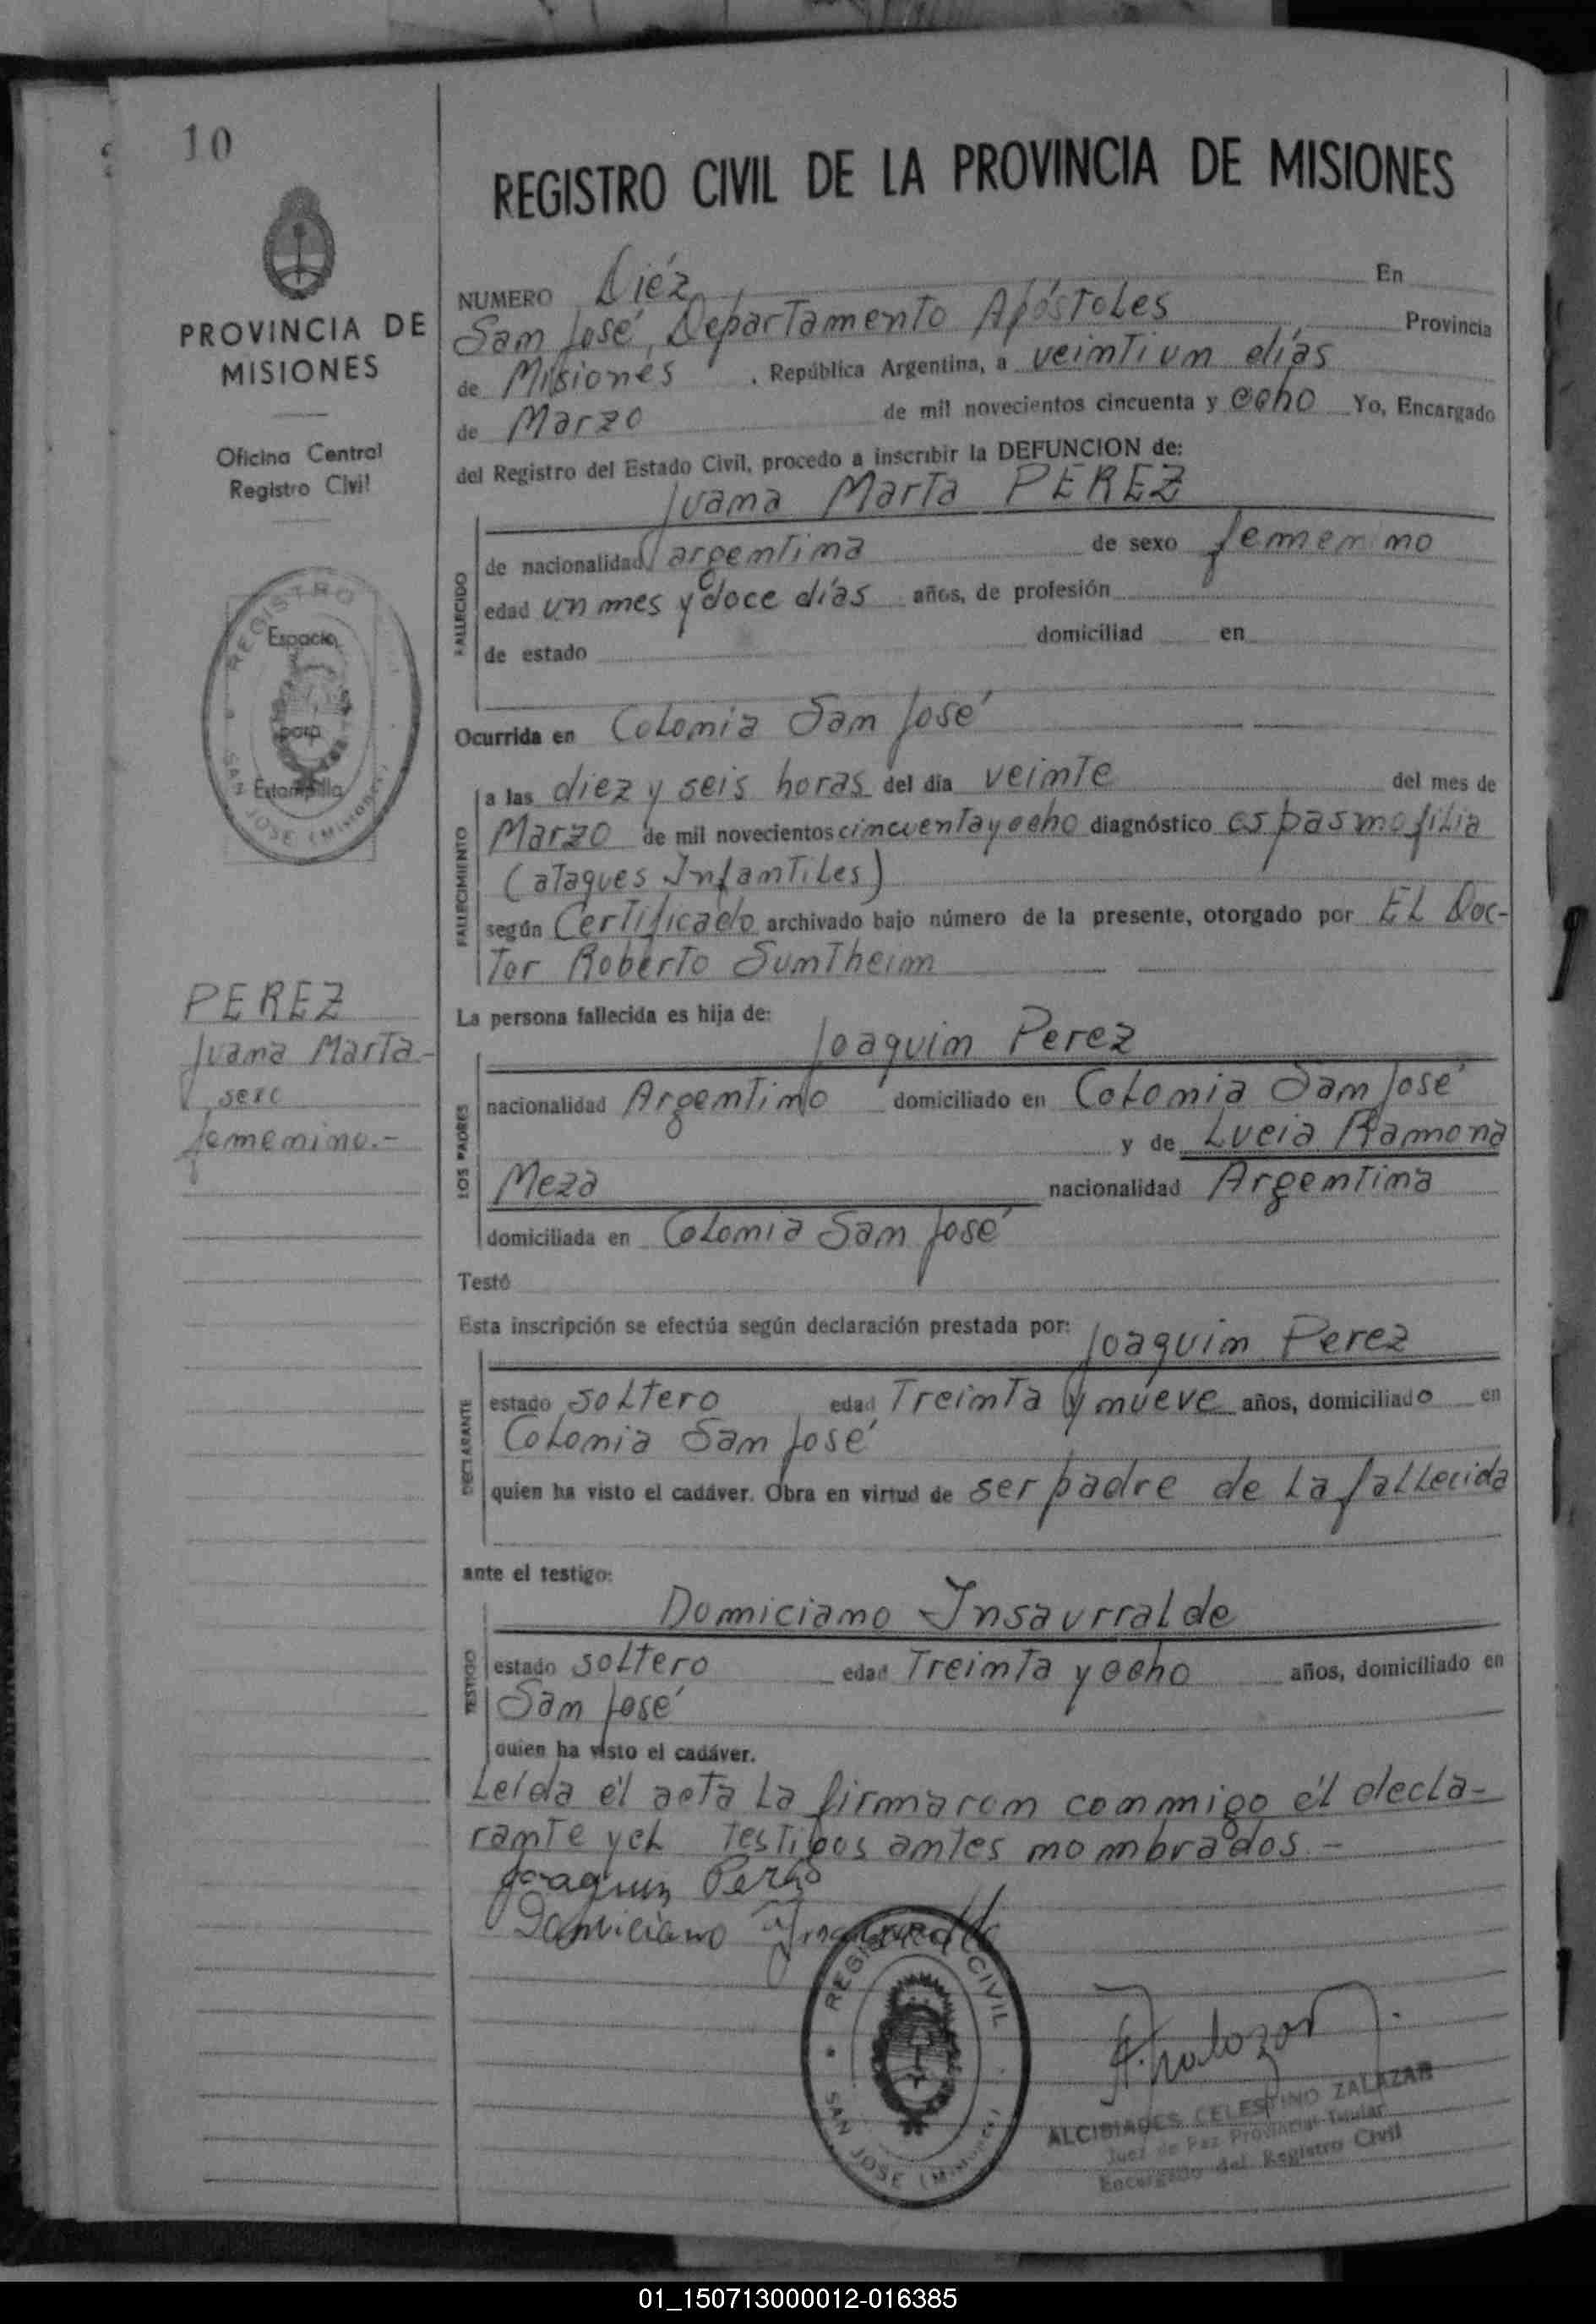 10
PROVINCIA DE
MISIONES
Oficina Central
Registro Civil
REGISTRO
Espacio
para
Estampilla
SAN JOSE (Misiones)
PEREZ
Juana Marta.-
sexo
femenino.-
REGISTRO CIVIL DE LA PROVINCIA DE MISIONES
NUMERO Diéz En
San José, Departamento Apóstoles Provincia
de Misiones , República Argentina, a veintiun días
de Marzo de mil novecientos cincuenta y ocho Yo, Encargado
del Registro del Estado Civil, procedo a inscribir la DEFUNCION de:
Juana Marta PEREZ
FALLECIDO
de nacionalidad argentina de sexo femenino
edad un mes y doce días años, de profesión
de estado domiciliad en
Ocurrida en Colonia San José
FALLECIMIENTO
a las diez y seis horas del día veinte del mes de
Marzo de mil novecientos cincuenta y ocho diagnóstico espasmofilia
(ataques Infantiles)
según Certificado archivado bajo número de la presente, otorgado por EL Doc-
tor Roberto Suntheim
La persona fallecida es hija de:
Joaquin Perez
LOS PADRES
nacionalidad Argentino domiciliado en Colonia San José
y de Lucia Ramona
Meza nacionalidad Argentina
domiciliada en Colonia San José
Testó
Esta inscripción se efectúa según declaración prestada por:
Joaquin Perez
DECLARANTE
estado soltero edad Treinta y nueve años, domiciliado en
Colonia San José
quien ha visto el cadáver. Obra en virtud de ser padre de La fallecida
ante el testigo:
Domiciano Insaurralde
TESTIGO
estado soltero edad Treinta y ocho años, domiciliado en
San José
quien ha visto el cadáver.
Leída él acta La firmaron conmigo él decla-
rante y el testigos antes nombrados.-
Joaquin Perez
Domiciano Insaurralde
REGISTRO CIVIL
SAN JOSE (Misiones)
A. Zalazar
ALCIBIADES CELESTINO ZALAZAR
Juez de Paz Provincial Titular
Encargado del Registro Civil
01_150713000012-016385